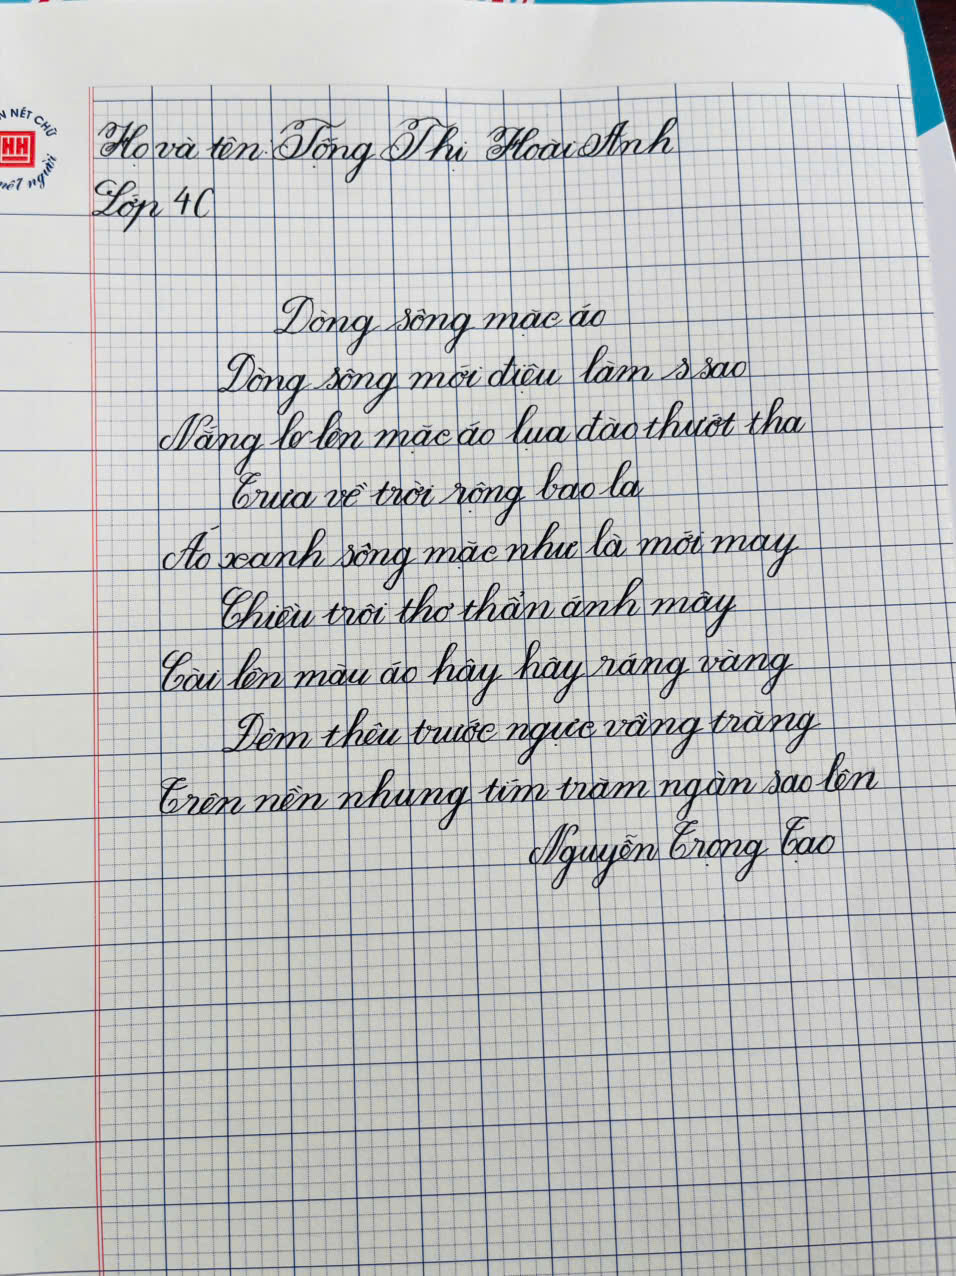 N NÉT CHỮ
HH
nét người
Họ và tên: Tống Thị Hoài Anh
Lớp 4C
Dòng sông mặc áo
Dòng sông mới điệu làm s sao
Nắng lên mặc áo lụa đào thướt tha
Trưa về trời rộng bao la
Áo xanh sông mặc như là mới may
Chiều trôi thơ thẩn áng mây
Cài lên màu áo hây hây ráng vàng
Đêm thêu trước ngực vầng trăng
Trên nền nhung tím trăm ngàn sao lên
Nguyễn Trọng Tạo